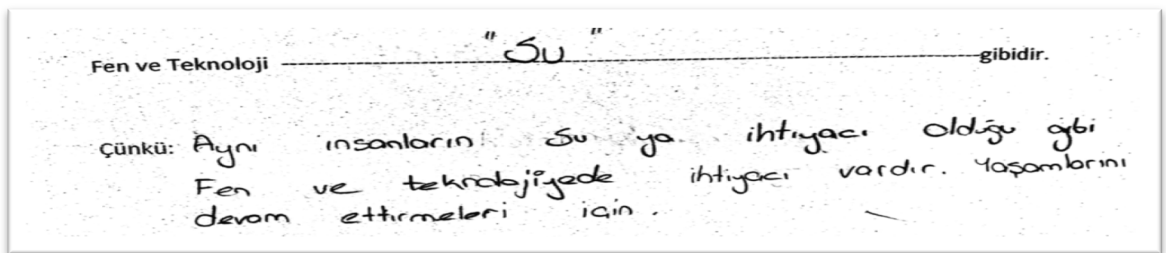 Fen ve Teknoloji "Su" gibidir.
Çünkü: Aynı insanların Su ya ihtiyacı olduğu gibi
Fen ve teknolojiyede ihtiyacı vardır. Yaşamlarını
devam ettirmeleri için.